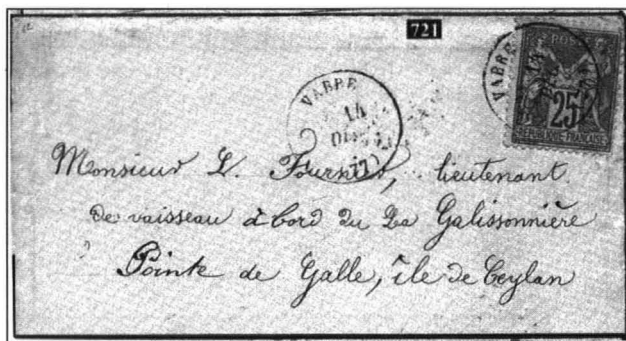 721
POSTES
25
REPUBLIQUE FRANCAISE
VABRE
VABRE
14
Monsieur L. Fournier, lieutenant
de vaisseau à bord du La Galissonnière
Pointe de Galle, île de Ceylan